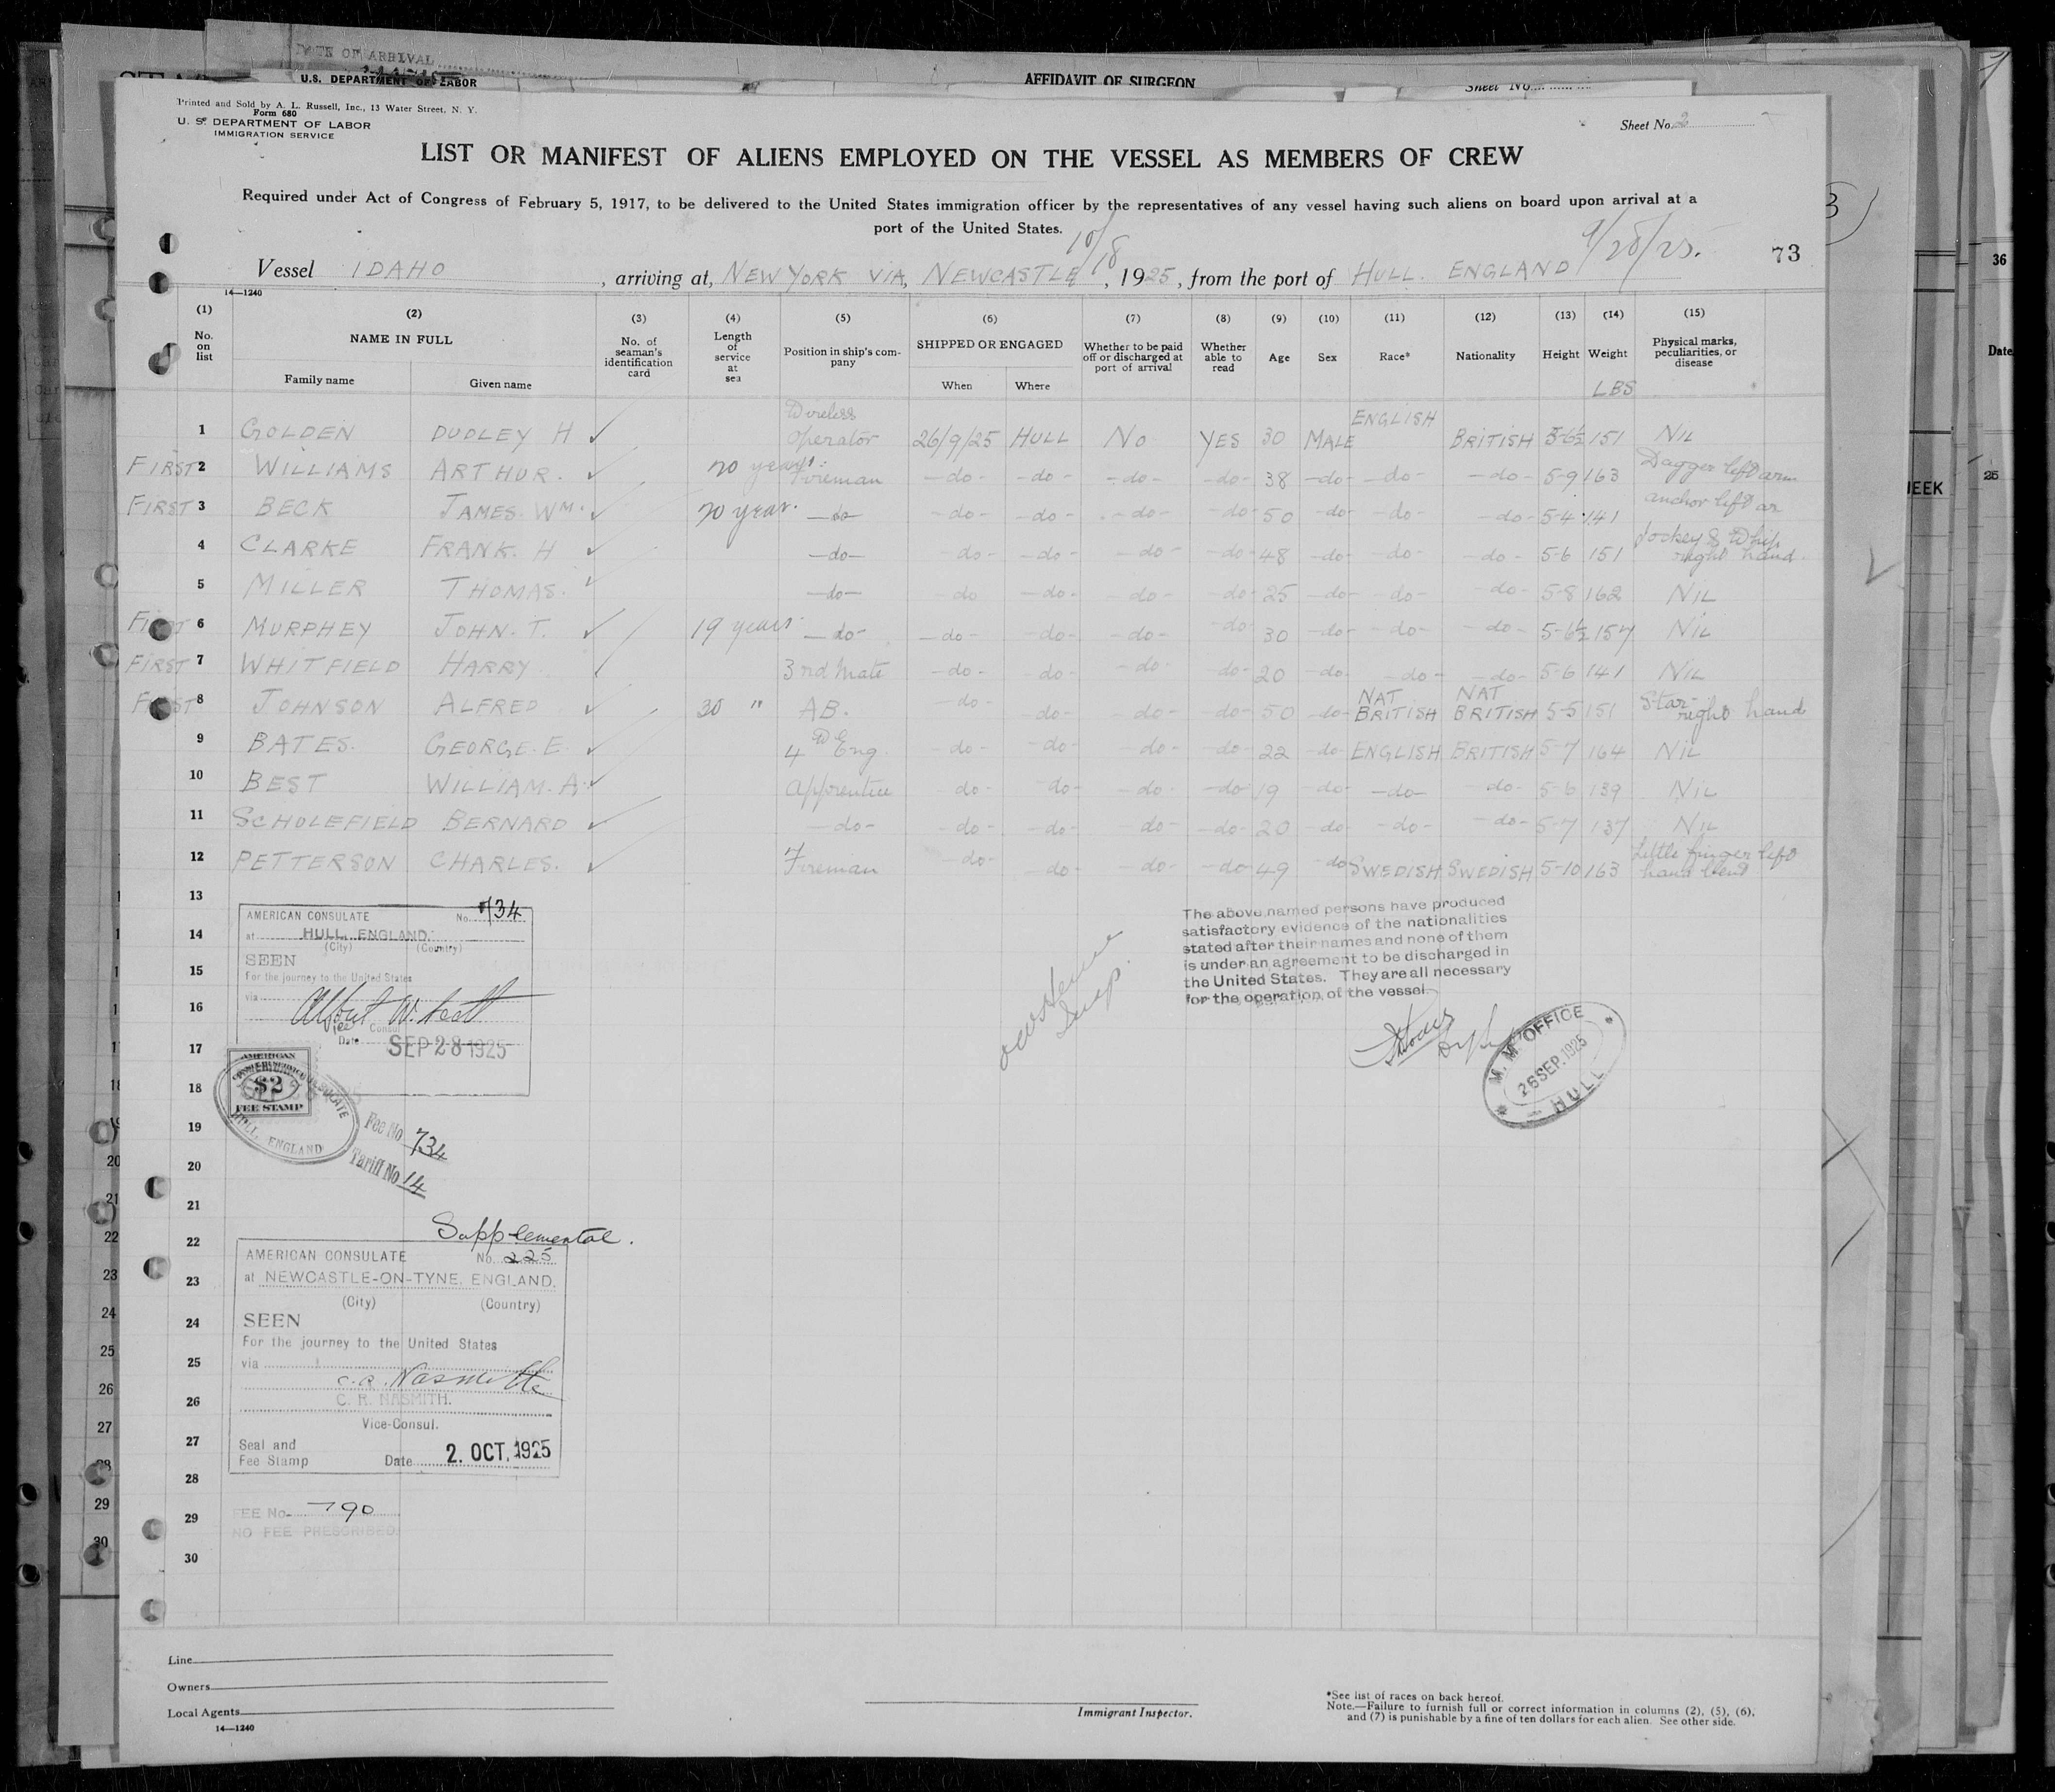 DATE OF ARRIVAL
U.S. DEPARTMENT OF LABOR
AFFIDAVIT OF SURGEON
Sheet No.
Printed and Sold by A. L. Russell, Inc., 13 Water Street, N. Y.
Form 680
U. S. DEPARTMENT OF LABOR
IMMIGRATION SERVICE
Sheet No. 2
LIST OR MANIFEST OF ALIENS EMPLOYED ON THE VESSEL AS MEMBERS OF CREW
Required under Act of Congress of February 5, 1917, to be delivered to the United States immigration officer by the representatives of any vessel having such aliens on board upon arrival at a
port of the United States.
10/18 9/28/25. 73
Vessel IDAHO, arriving at, NEW YORK VIA, NEWCASTLE, 1925, from the port of HULL. ENGLAND
14—1240
(1) (2) (3) (4) (5) (6) (7) (8) (9) (10) (11) (12) (13) (14) (15)
No. on list NAME IN FULL No. of seaman's identification card Length of service at sea Position in ship's company SHIPPED OR ENGAGED Whether to be paid off or discharged at port of arrival Whether able to read Age Sex Race* Nationality Height Weight Physical marks, peculiarities, or disease
Family name Given name When Where LBS
1 GOLDEN DUDLEY H ✓ Wireless operator 26/9/25 HULL NO YES 30 MALE ENGLISH BRITISH 5-6½ 151 NIL
FIRST 2 WILLIAMS ARTHUR. ✓ 20 years Fireman -do- -do- -do- -do- 38 -do- -do- -do- 5-9 163 Dagger left arm
FIRST 3 BECK JAMES WM. ✓ 20 year. -do- -do- -do- -do- -do- 50 -do- -do- -do- 5-4 141 anchor left ar
4 CLARKE FRANK. H ✓ -do- -do- -do- -do- -do- 48 -do- -do- -do- 5-6 151 Jockey & Whip right hand.
5 MILLER THOMAS. ✓ -do- -do -do- -do- -do- 25 -do- -do- -do- 5-8 162 NIL
FIRST 6 MURPHEY JOHN. T. ✓ 19 years -do- -do- -do- -do- -do- 30 -do- -do- -do- 5-6½ 157 NIL
FIRST 7 WHITFIELD HARRY ✓ 3rd Mate -do- -do- -do- -do- 20 -do- -do- -do- 5-6 141 NIL
FIRST 8 JOHNSON ALFRED ✓ 30 " AB. -do- -do- -do- -do- 50 -do- NAT BRITISH NAT BRITISH 5-5 151 Star right hand
9 BATES. GEORGE. E. ✓ 4 Eng. -do- -do- -do- -do- 22 -do- ENGLISH BRITISH 5-7 164 NIL
10 BEST WILLIAM. A. ✓ Apprentice -do- -do- -do- -do- 19 -do- -do- -do- 5-6 139 NIL
11 SCHOLEFIELD BERNARD ✓ -do- -do- -do- -do- -do- 20 -do- -do- -do- 5-7 137 NIL
12 PETTERSON CHARLES. ✓ Fireman -do- -do- -do- -do- 49 -do SWEDISH SWEDISH 5-10 163 Little finger left hand bent
13
14
15
16
17
18
19
20
21
22
23
24
25
26
27
28
29
30
AMERICAN CONSULATE No. 734
at HULL, ENGLAND.
(City) (Country)
SEEN
For the journey to the United States
via
Vice Consul
Date SEP 28 1925
AMERICAN
$2
FEE STAMP
HULL, ENGLAND
Fee No 734
Tariff No 14
The above named persons have produced
satisfactory evidence of the nationalities
stated after their names and none of them
is under an agreement to be discharged in
the United States. They are all necessary
for the operation of the vessel
M. M. OFFICE
26 SEP. 1925
HULL
Supplemental.
AMERICAN CONSULATE No. 225
at NEWCASTLE-ON-TYNE, ENGLAND.
(City) (Country)
SEEN
For the journey to the United States
via
C. R. Nasmith
C. R. NASMITH.
Vice-Consul.
Seal and
Fee Stamp Date 2. OCT. 1925
FEE No. 790
NO FEE PRESCRIBED.
Line
Owners
Local Agents
14—1240
Immigrant Inspector.
*See list of races on back hereof.
Note.—Failure to furnish full or correct information in columns (2), (5), (6),
and (7) is punishable by a fine of ten dollars for each alien. See other side.